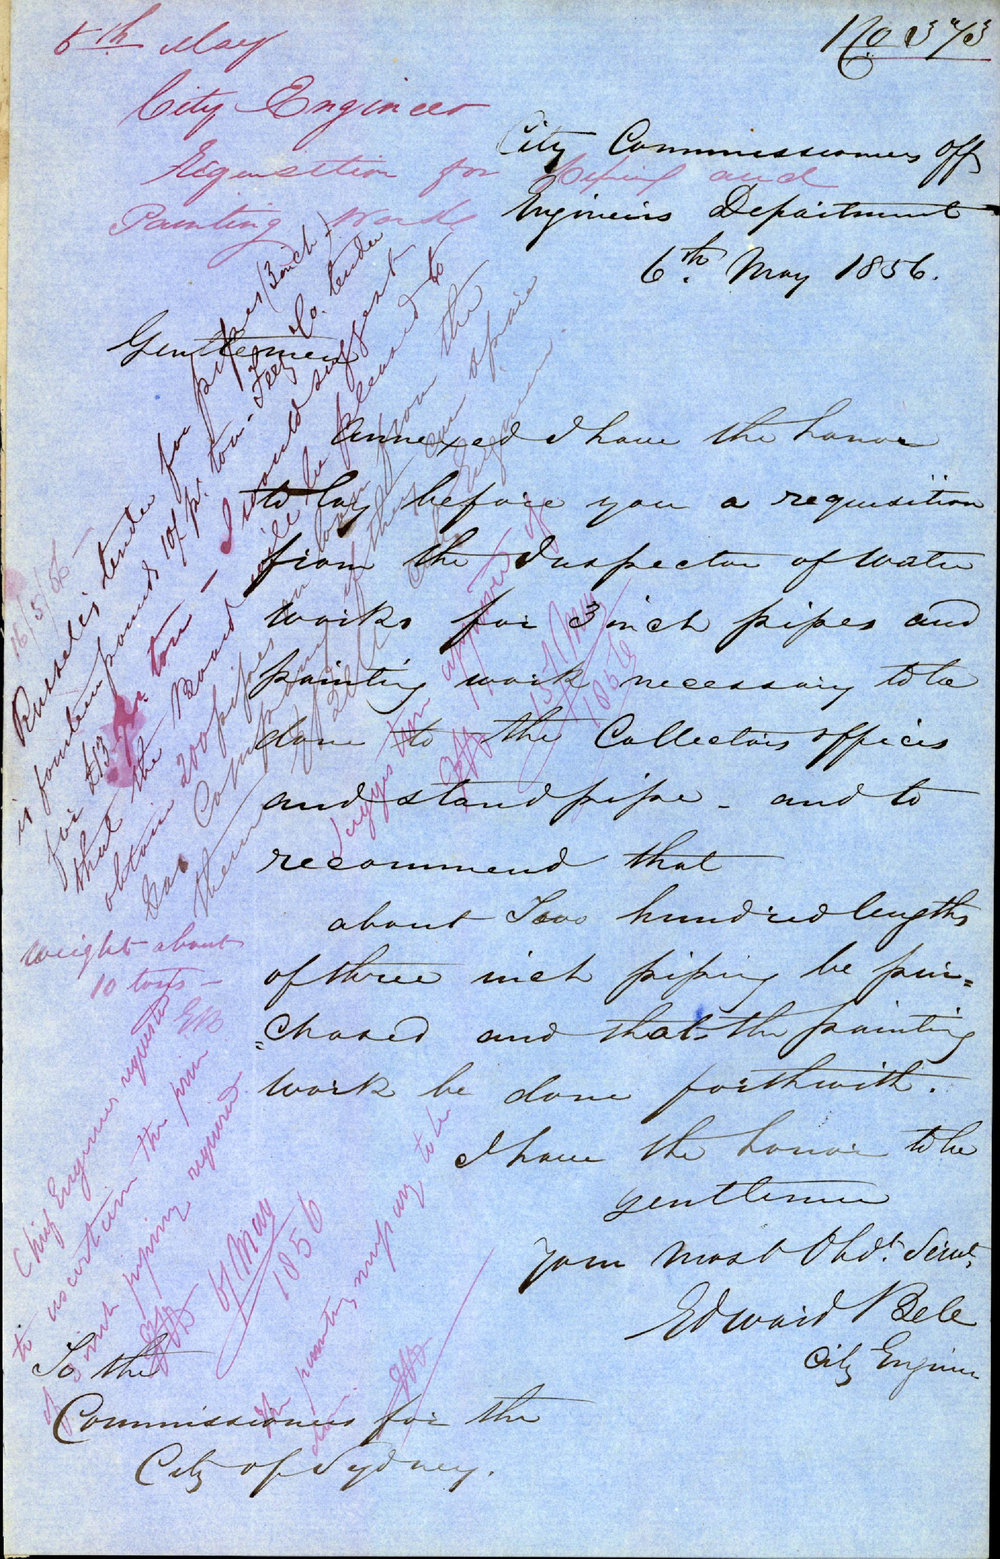 No 373
6th May
City Engineer
Requisition for Piping and
Painting Work
City Commissioners Off
Engineers Department
6th May 1856.
Gentlemen
Annexed I have the honor
to lay before you a requisition
from the Inspector of Water
works for 3 inch pipes and
painting work necessary to be
done to the Collectors offices
and standpipe - and to
recommend that
about Two hundred lengths
of three inch piping be pur=
=chased and that the painting
work be done forthwith.
I have the honor to be
gentlemen
Your most Obdt. Servt.
Edward Bell
City Engineer
To the
Commissioners for the
City of Sydney.
16/5/56
Russell's tender for pipes (3 inch)
is fourteen pounds 10/ pr. ton - Fees do. tender
for £13 pr. ton - I would suggest
that the Board will be pleased to
obtain 200 pipes on loan from the
Gas Company if they can spare
them
City Engineer
Suggestion approved of
15th May
1856
Weight about
10 tons -
EB
Chief Engineer requested
to ascertain the price
of 3 inch piping required
9/May
1856
The painting may be
done